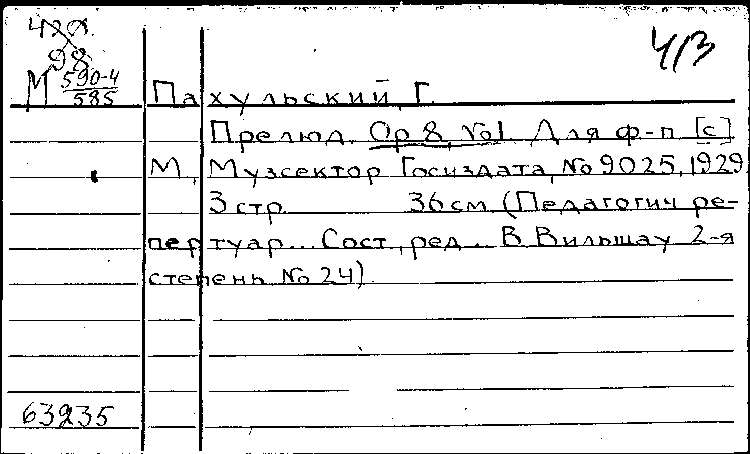 98
М 590-4
585
Ч/З
Пахульский, Г.
Прелюд. Ор 8, №1. Для ф-п [с]
М., Музсектор Госиздата, № 9025, 1929
3 стр. 36 см. (Педагогич ре-
пертуар... Сост., ред... В Вильшау 2-я
степень № 24)
63235